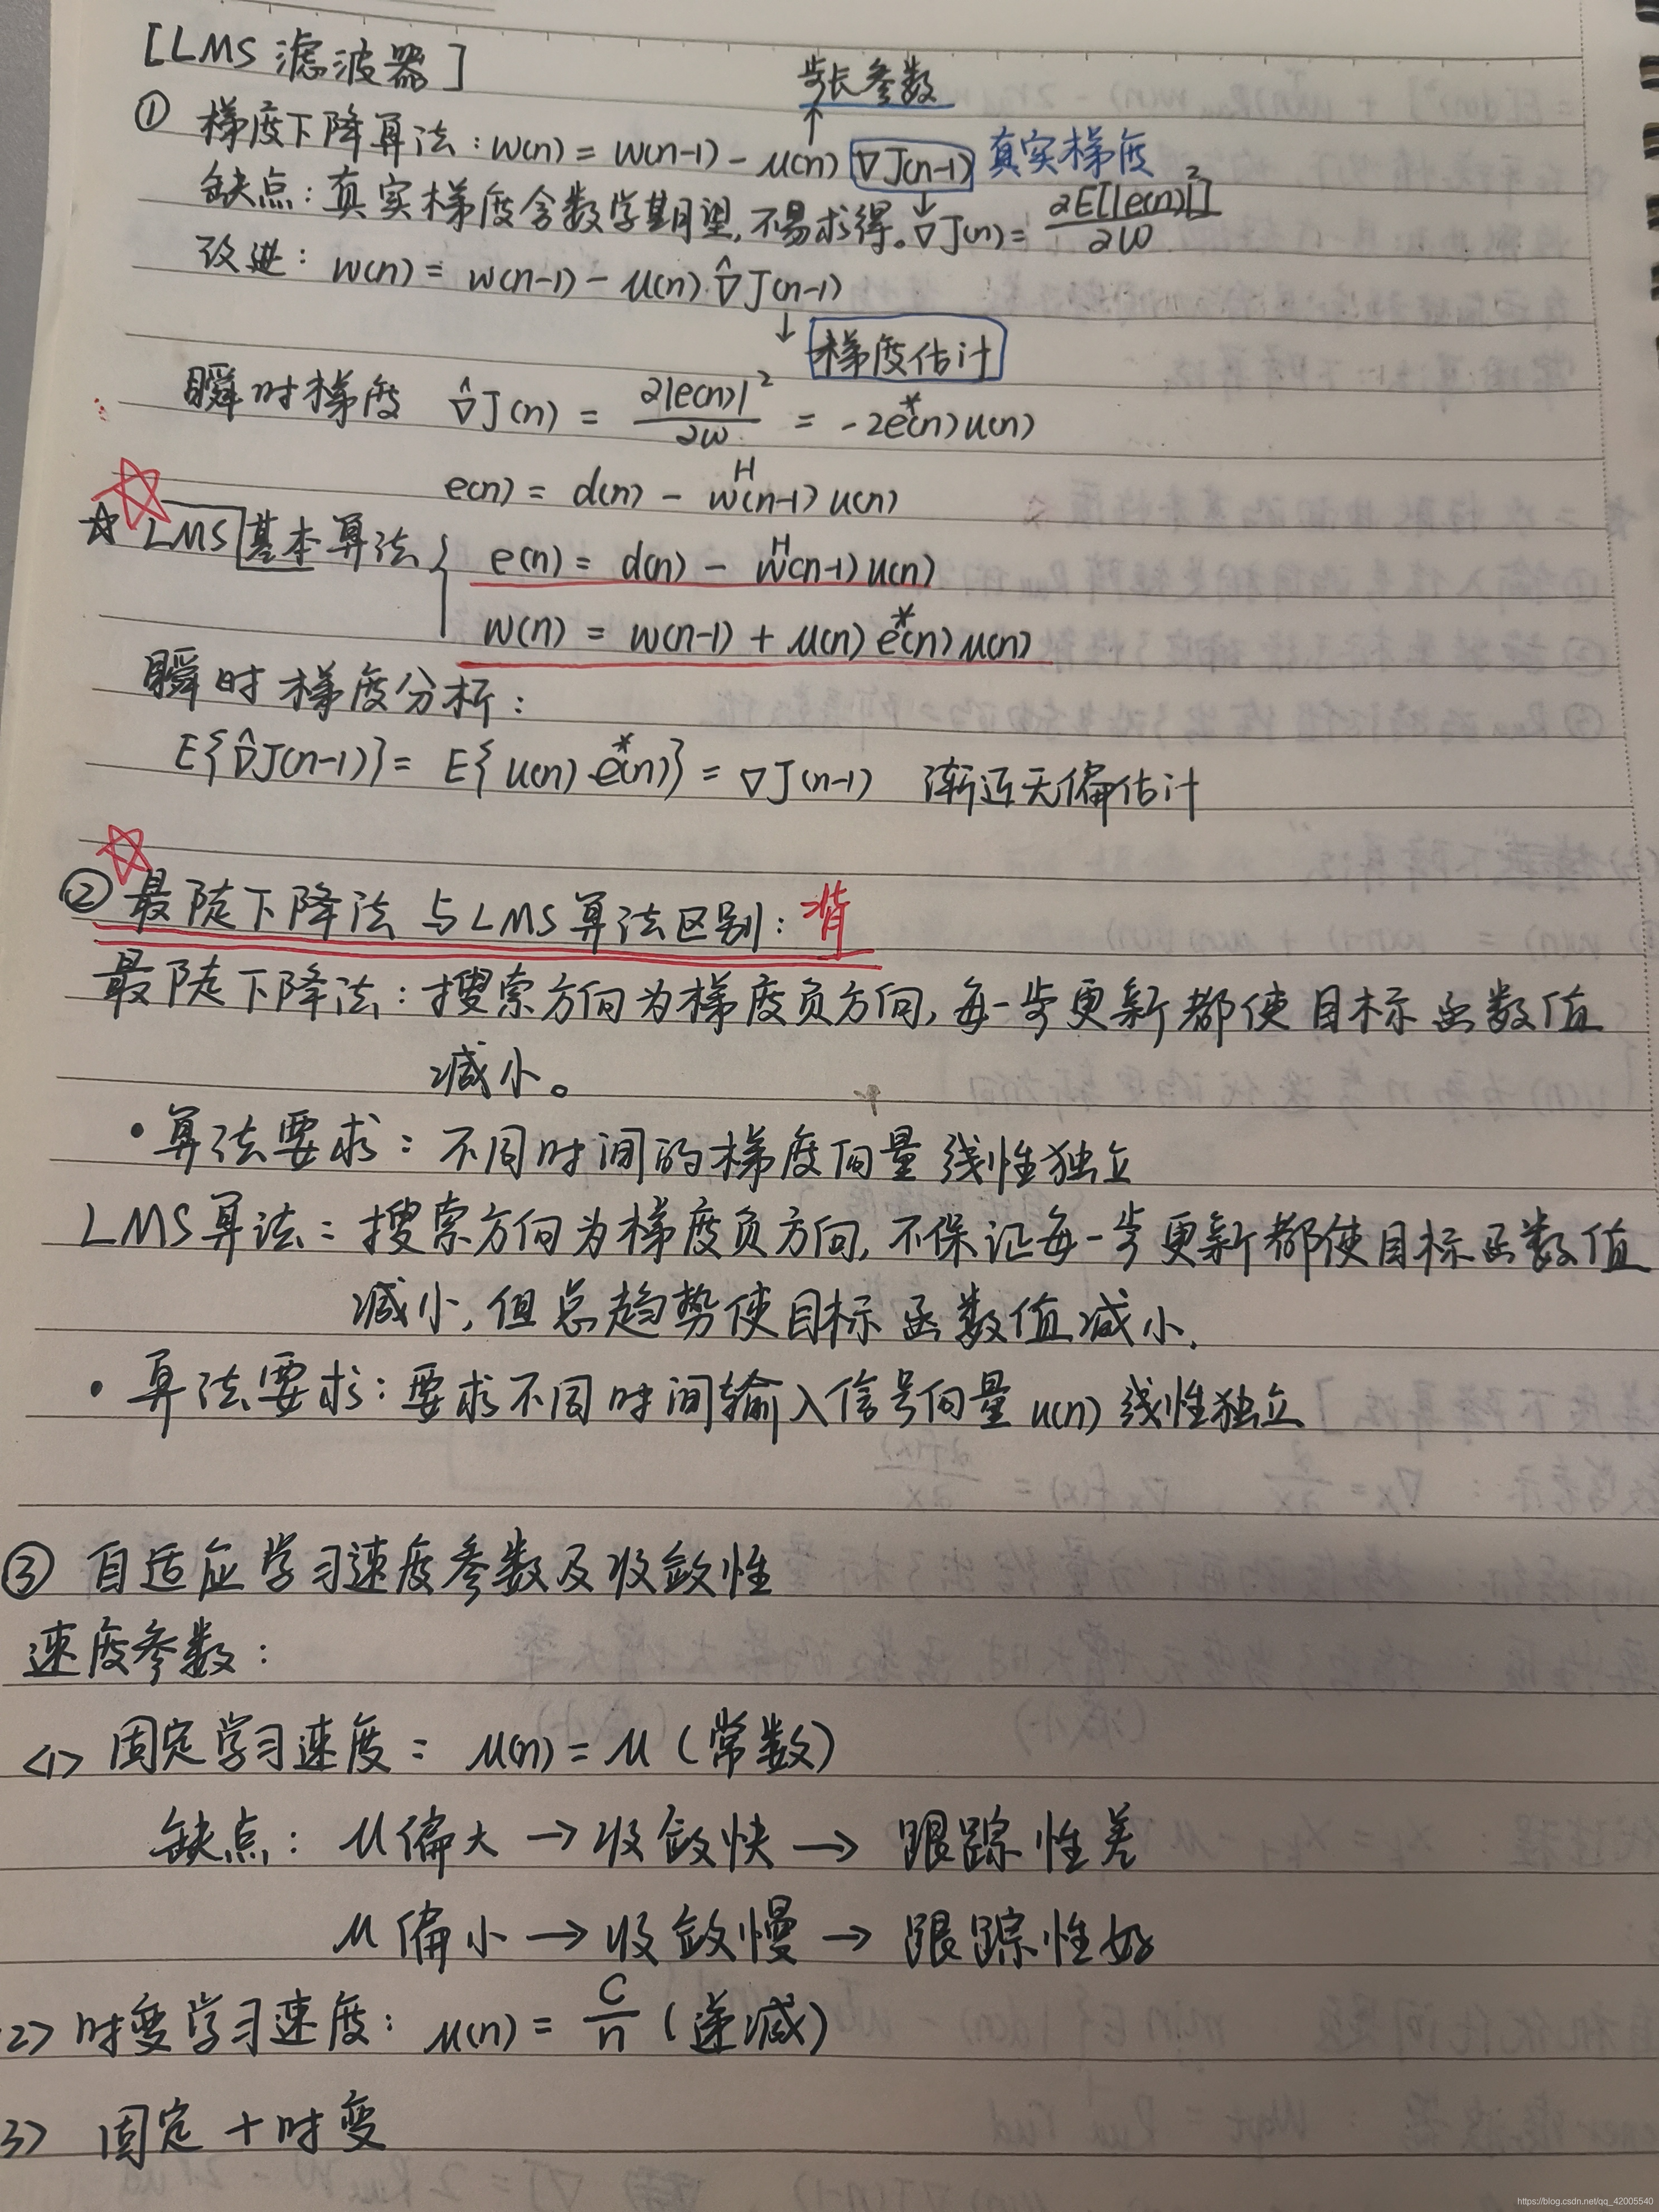 [LMS 滤波器]
步长参数
① 梯度下降算法：w(n) = w(n-1) - μ(n) ∇J(n-1) 真实梯度
缺点：真实梯度含数学期望，不易求得。∇J(n) = ∂E[|e(n)|²] / ∂w
改进：w(n) = w(n-1) - μ(n) ∇̂J(n-1)
梯度估计
瞬时梯度 ∇̂J(n) = ∂|e(n)|² / ∂w = -2e*(n)u(n)
e(n) = d(n) - wᴴ(n-1)u(n)
☆ LMS基本算法 { e(n) = d(n) - wᴴ(n-1)u(n)
w(n) = w(n-1) + μ(n)e*(n)u(n)
瞬时梯度分析：
E{∇̂J(n-1)} = E{u(n)e*(n)} = ∇J(n-1) 渐近无偏估计
② 最陡下降法与LMS算法区别：背
最陡下降法：搜索方向为梯度负方向，每一步更新都使目标函数值
减小。
• 算法要求：不同时间的梯度向量线性独立
LMS算法：搜索方向为梯度负方向，不保证每一步更新都使目标函数值
减小，但总趋势使目标函数值减小.
• 算法要求：要求不同时间输入信号向量u(n)线性独立
③ 自适应学习速度参数及收敛性
速度参数：
<1> 固定学习速度：μ(n) = μ (常数)
缺点：μ偏大 → 收敛快 → 跟踪性差
μ偏小 → 收敛慢 → 跟踪性好
2> 时变学习速度：μ(n) = C/n (递减)
3> 固定 + 时变
https://blog.csdn.net/qq_42005540